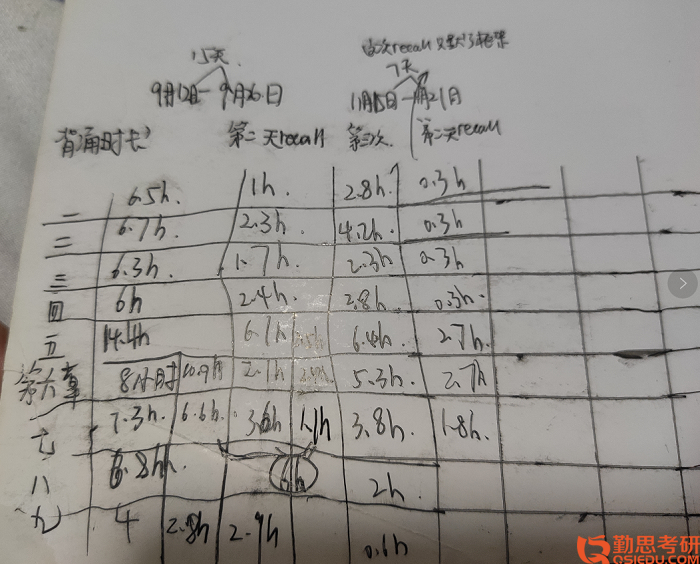 15天
此次recall只默了框架
7天
9月12日-9月26日
11月15日-11月21日
背诵时长
第二天recall
第三次
第二天recall
一 6.5h. 1h. 2.8h. 0.3h
二 6.7h. 2.3h. 4.2h. 0.3h
三 6.3h. 1.7h. 2.3h 0.3h
四 6h 2.4h. 2.8h 0.3h.
五 14.4h 6.4h. 2.7h
第六章 8小时 2.1h 5.3h 2.7h
七 7.3h. 6.6h. 3.6h 1.1h 3.8h. 1.8h.
八 6.8h. 2h
九 4 2.8h 2.9h 0.6h
勤思考研
QSIEDU.COM